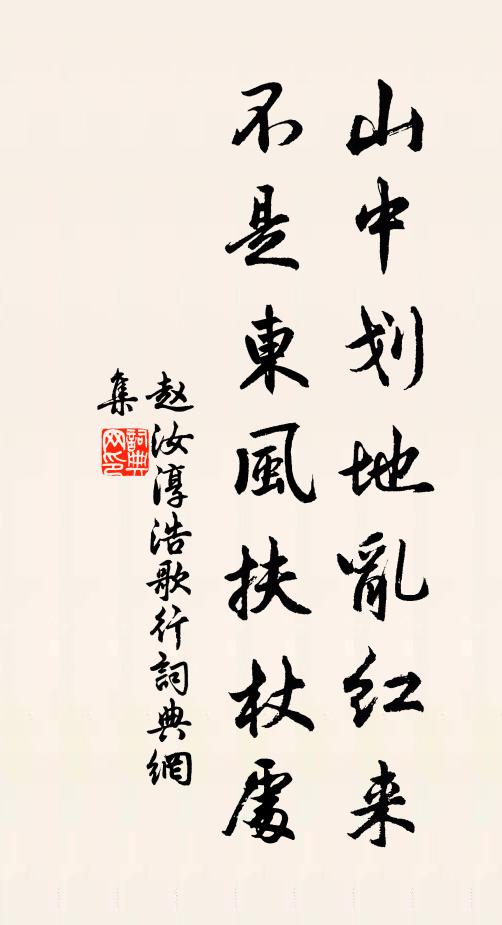 山中划地亂红来
不是東風扶杖處
赵汝淳浩歌行詞典網
集
詞典网印